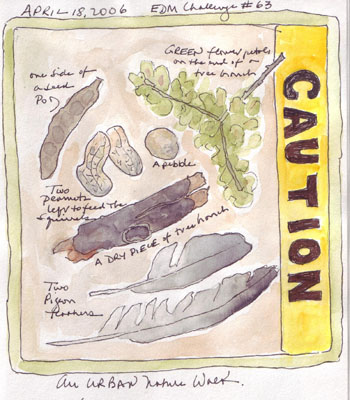 APRIL 18, 2006 EDM Challenge #63
GREEN flower petals
on the end of a
tree branch
one side of
a seed
Pod
A pebble
Two
peanuts
left to feed the
squirrels
A DRY PIECE of tree branch
Two
Pigeon
feathers
CAUTION
An URBAN Nature Walk.